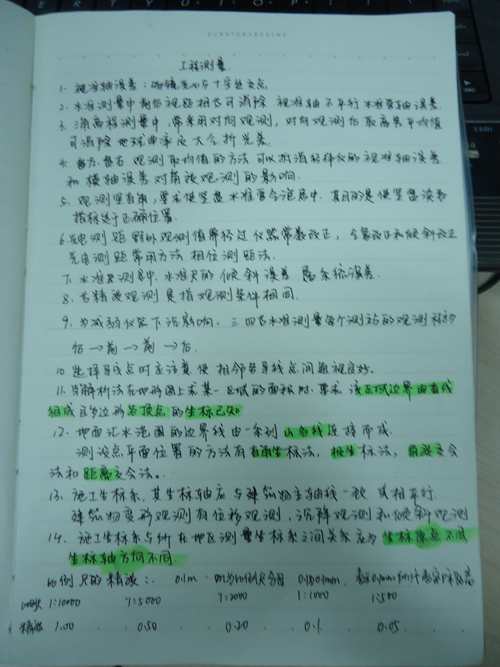 工程测量
1. 视准轴误差：物镜光心与十字丝交点
2. 水准测量中前后视距相等可消除 视准轴不平行水准管轴误差
3. 三角高程测量中，常采用对向观测，对向观测后取高差平均值
可消除地球曲率及大气折光差
4. 盘左、盘右 观测取均值的方法可以抵消 视准轴误差
和横轴误差对角度观测的影响.
5. 观测竖直角，要求使竖盘水准管气泡居中，其目的是使竖盘读数
指标处于正确位置.
6. 测距 的观测值需经过仪器常数改正，气象改正和倾斜改正
光电测距常用方法 相位测距法.
7. 水准测量中，水准尺的倾斜误差 属系统误差.
8. 等精度观测是指观测条件相同.
9. 为减弱仪器下沉影响，三四等水准测量每个测站的观测程序为
后→前→前→后.
10. 选择导线点时应注意使相邻导线点间通视良好.
11. 当解析法在地形图上求某一区域的面积时，要求该区域边界由直线
组成且多边形各顶点的坐标已知
12. 地面汇水范围的边界线由一系列山脊线连接而成.
测设点平面位置的方法有直角坐标法，极坐标法，角度交会
法和距离交会法.
13. 施工坐标系，其坐标轴应与建筑物主轴线一致或相平行.
建筑物变形观测有位移观测，沉降观测和倾斜观测
14. 施工坐标系与所在地区测量坐标系之间关系应为坐标原点不同
坐标轴方向不同.
比例尺的精度： 0.1m
比例尺 1:10000 1:5000 1:2000 1:1000 1:500
精度 1.00 0.50 0.20 0.1 0.05